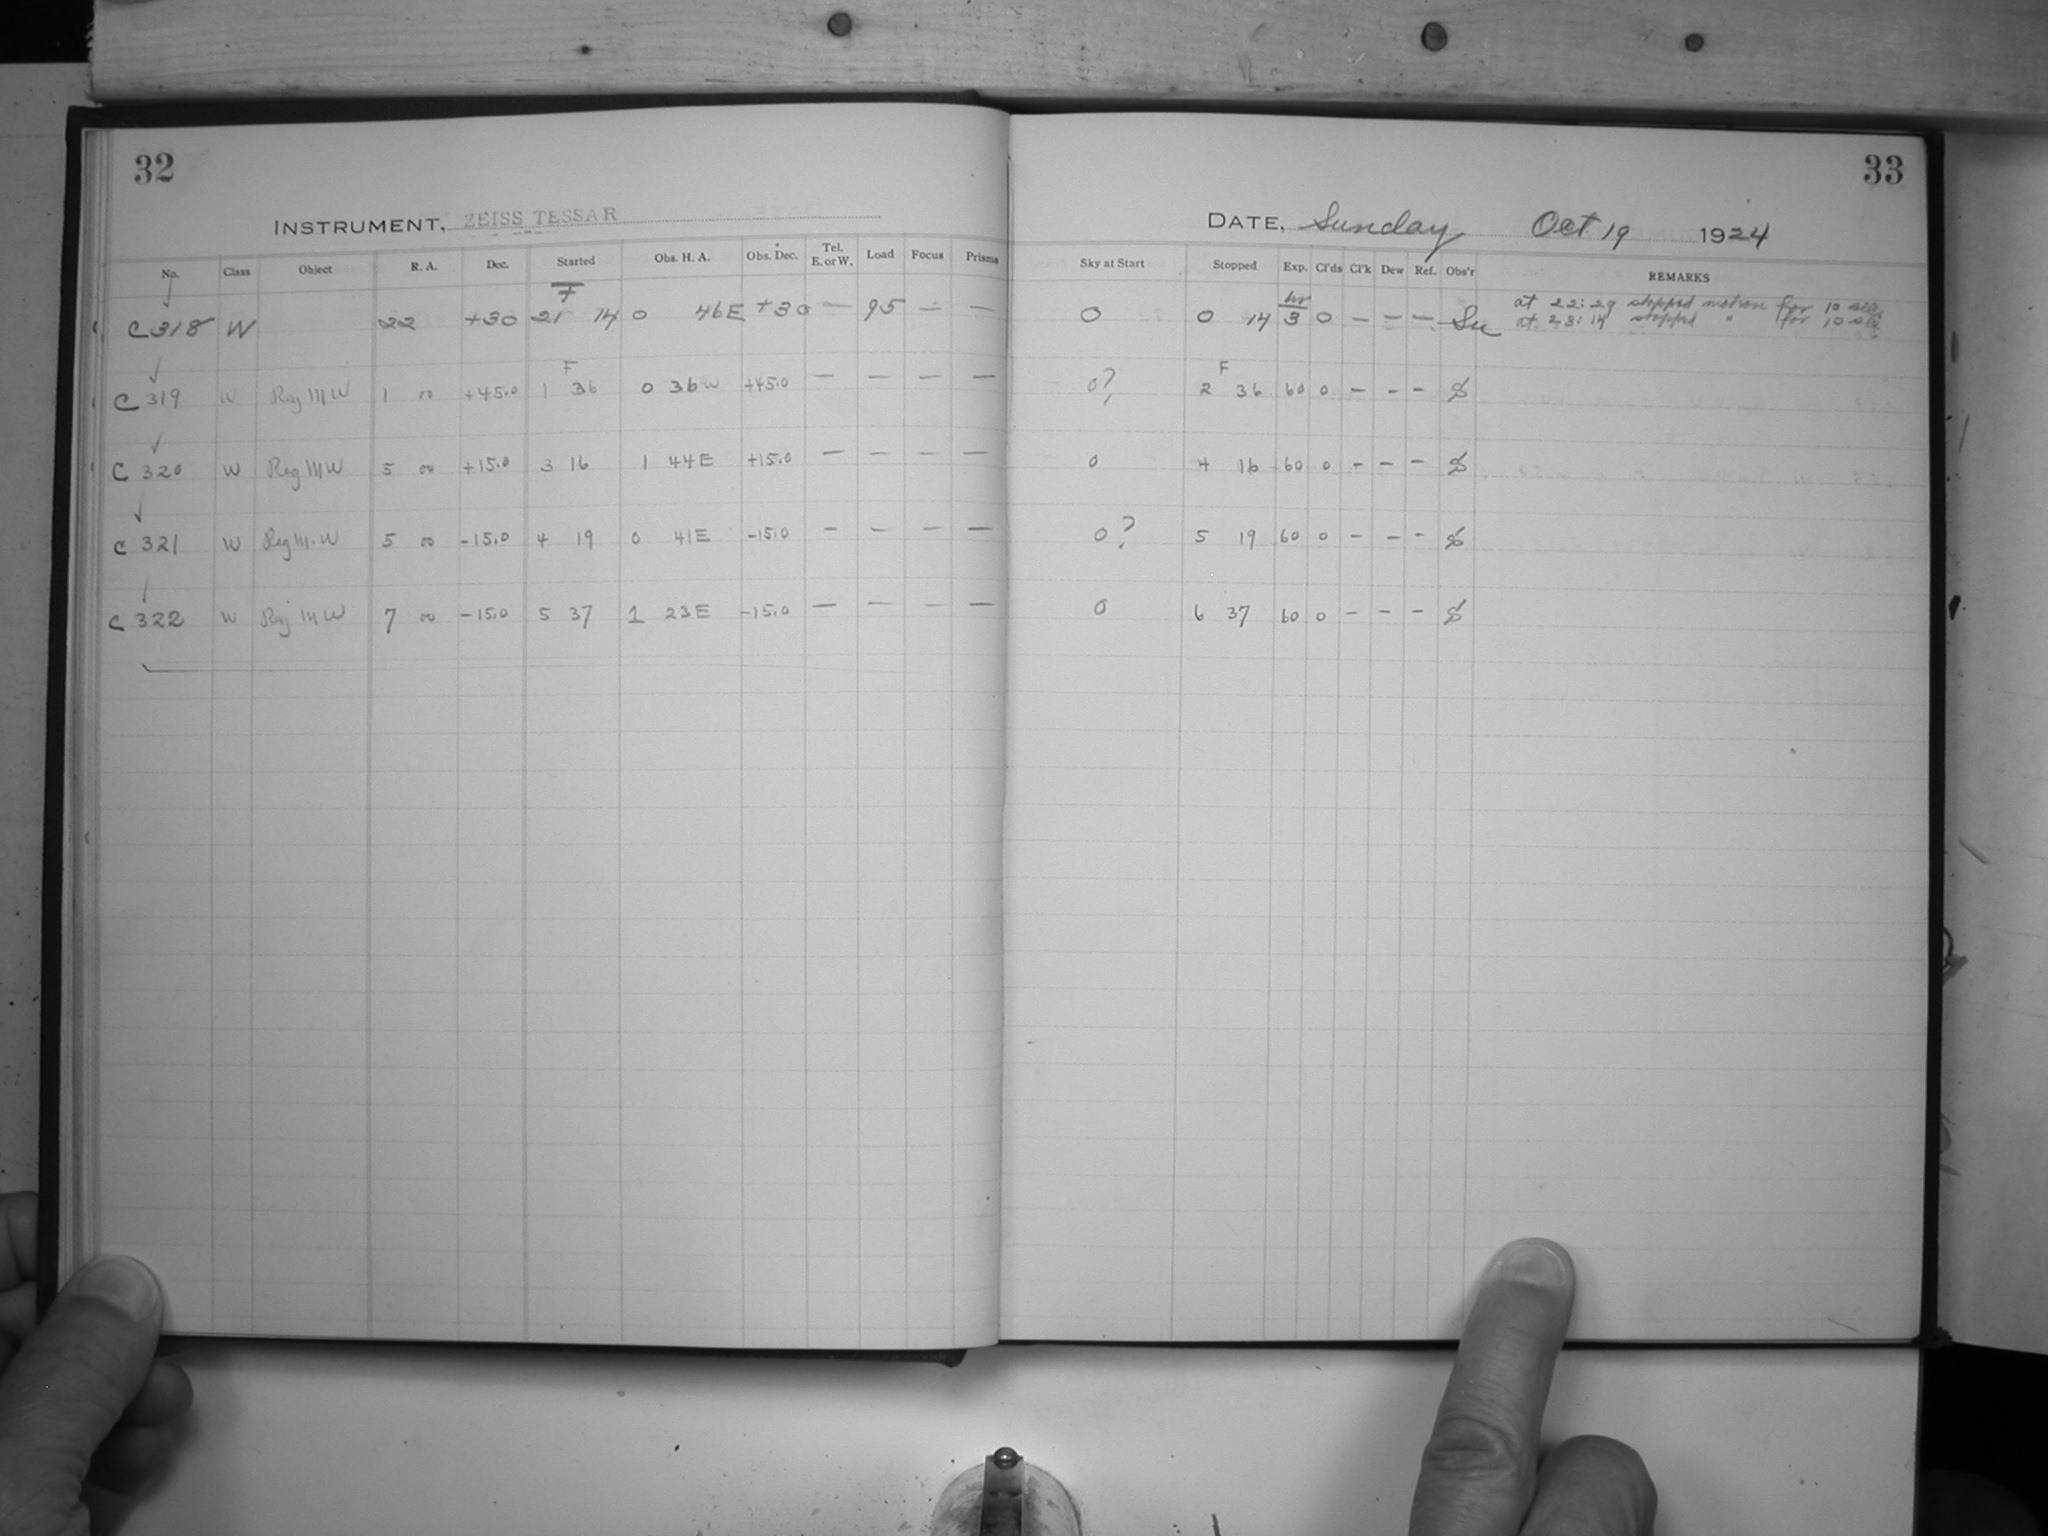 32
INSTRUMENT, ZEISS TESSAR
No. Class Object R. A. Dec. Started Obs. H. A. Obs. Dec. Tel. E. or W. Load Focus Prisms
F
C 318 W 22 +30 21 14 0 46E +30 — 95 — —
F
C 319 W Reg M W 1 00 +45.0 1 36 0 36 W +45.0 — — — —
C 320 W Reg M W 5 00 +15.0 3 16 1 44E +15.0 — — — —
C 321 W Reg M. W 5 00 -15.0 4 19 0 41E -15.0 — — — —
C 322 W Reg M W 7 00 -15.0 5 37 1 23E -15.0 — — — —
33
DATE, Sunday Oct 19 1924
Sky at Start Stopped Exp. Cl'ds Cl'k Dew Ref. Obs'r REMARKS
hr
0 0 14 3 0 — — — Su at 22:29 stopped motion for 10 sec.
at 23:14 stopped " for 10 sec
F
0? 2 36 60 0 — — —
0 4 16 60 0 — — —
0? 5 19 60 0 — — —
0 6 37 60 0 — — —